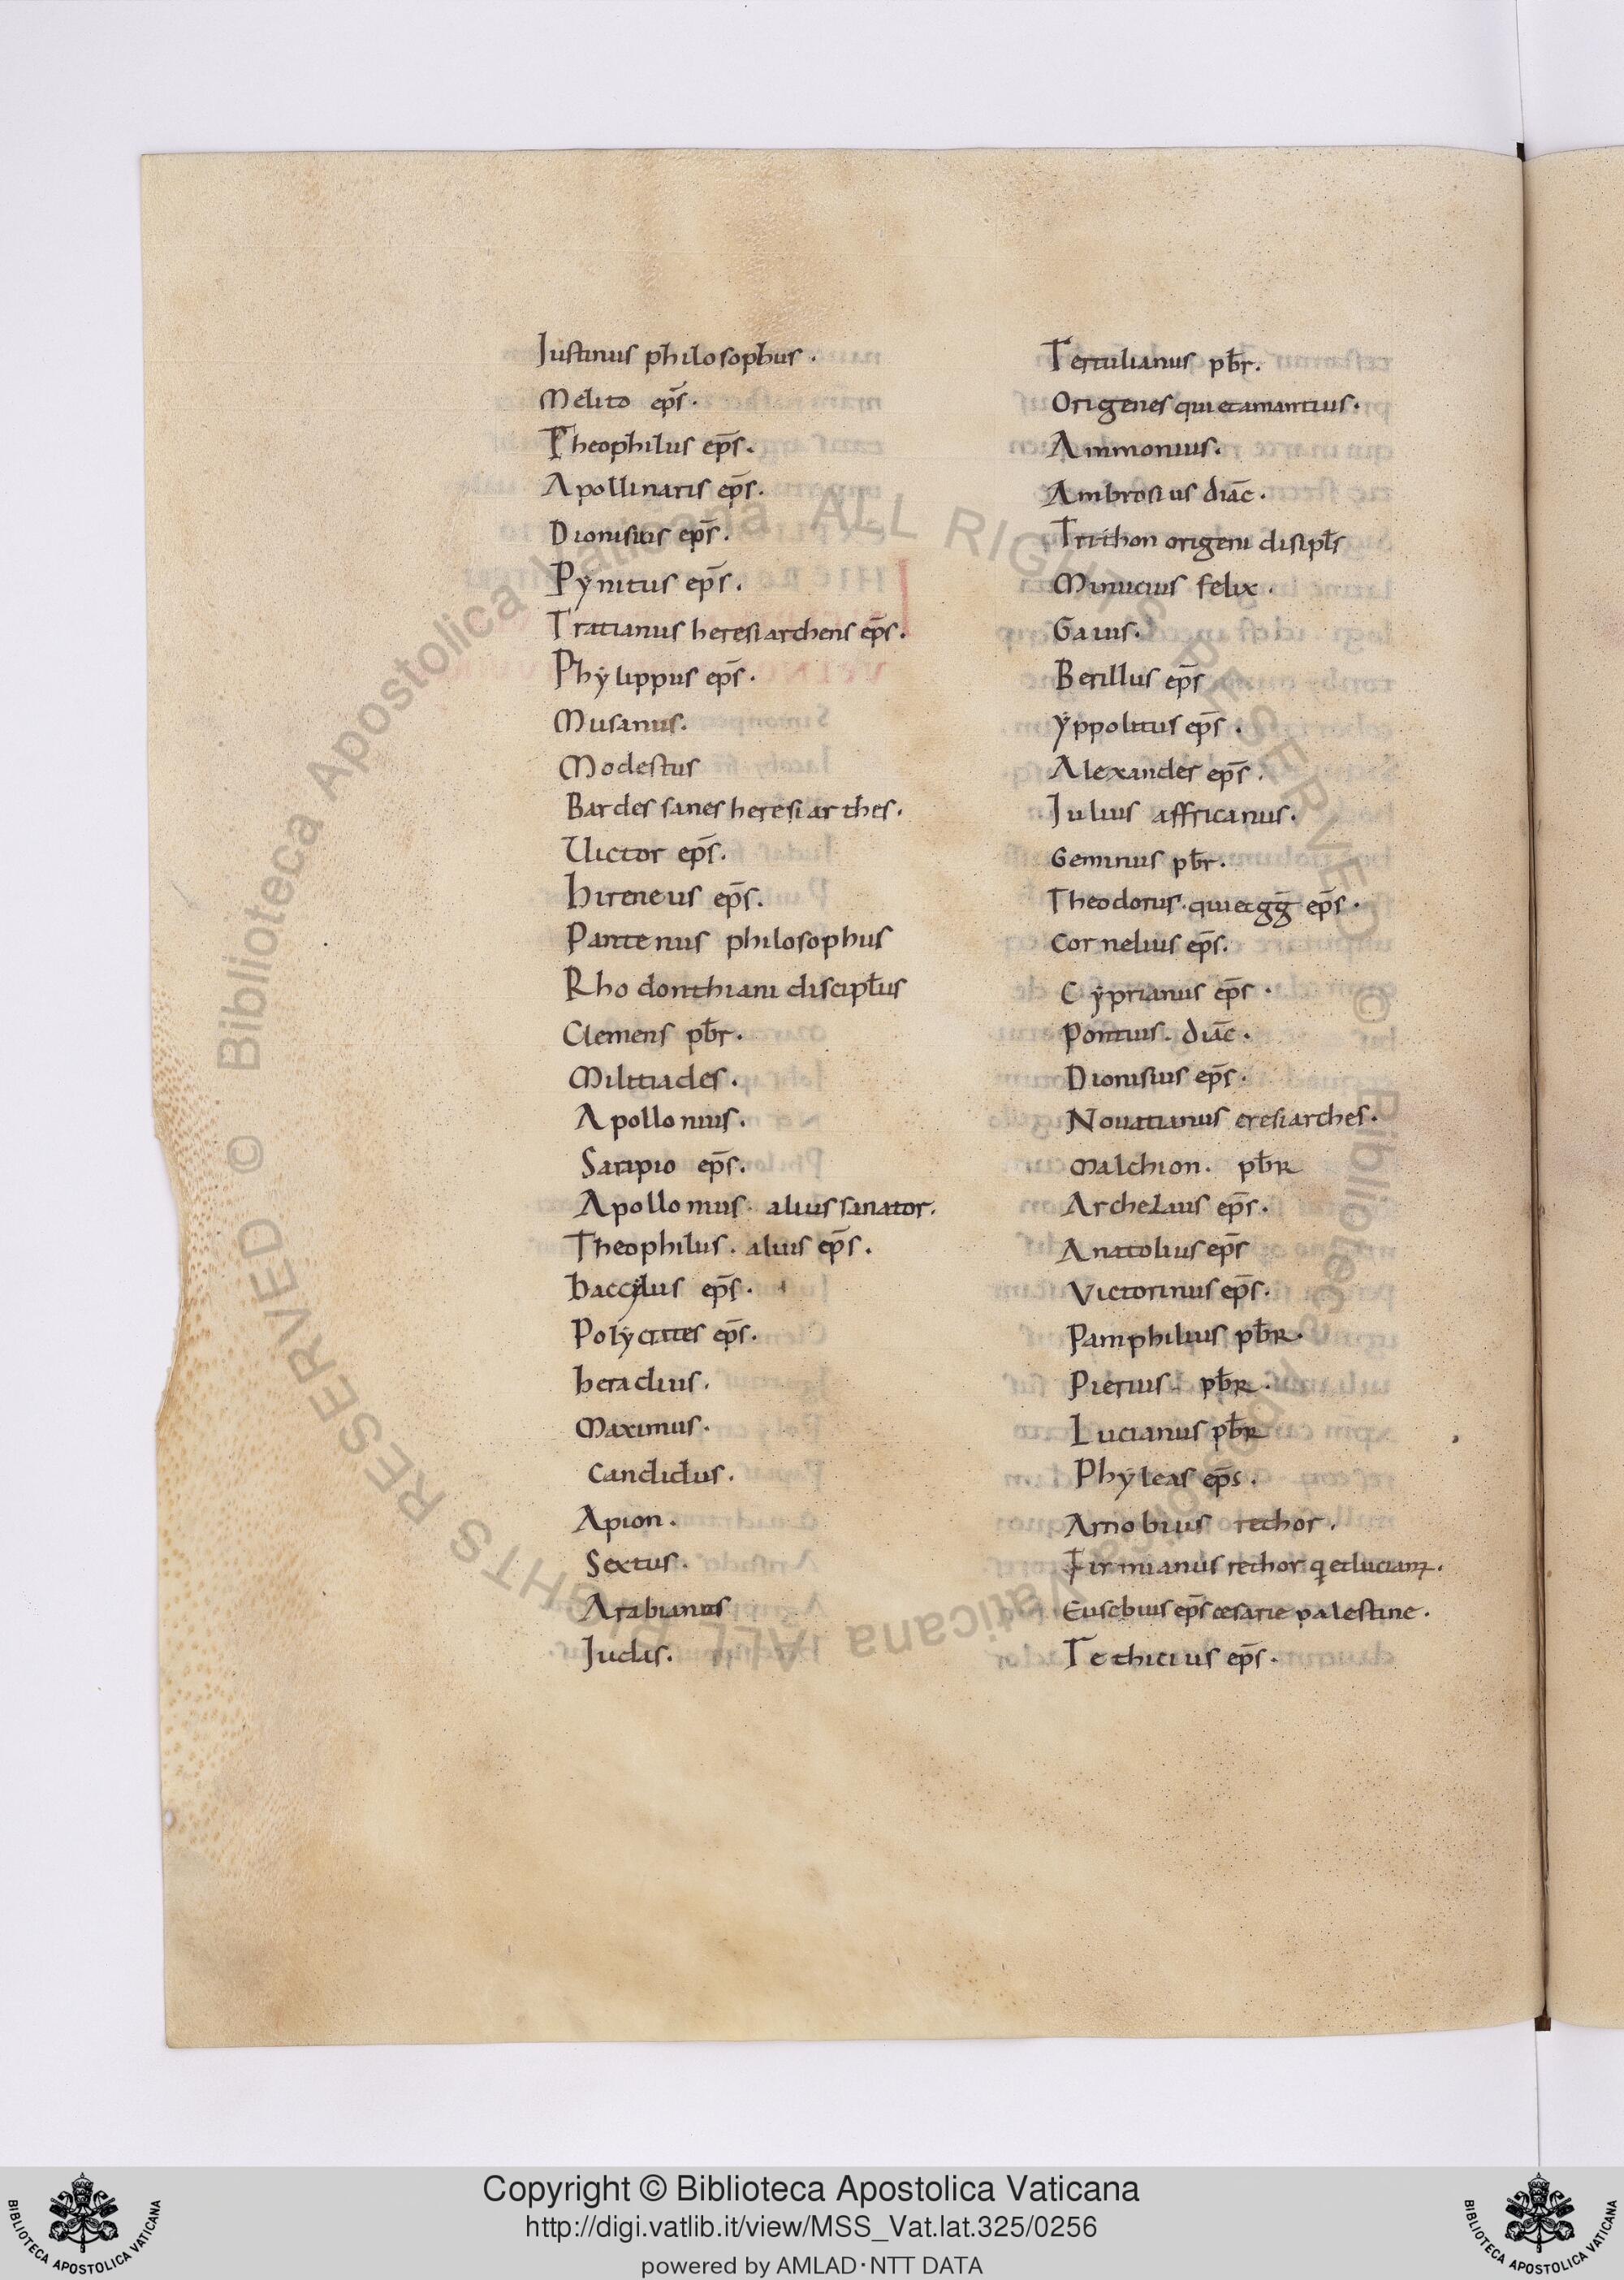 Justinus philosophus.
Melito ep̅s.
Theophilus ep̅s.
Apollinaris ep̅s.
Dionisius ep̅s.
Pynitus ep̅s.
Tratianus heresiarchens ep̅s.
Phylippus ep̅s.
Musanus.
Modestus
Bardes sanes heresiarches.
Uictor ep̅s.
Hireneus ep̅s.
Pantenus philosophus
Rhodonthiani discipl̅us
Clemens pb̅r.
Militiades.
Apollonius.
Sarapio ep̅s.
Apollonius. alius sanator.
Theophilus. alius ep̅s.
Baccylus ep̅s.
Polycrates ep̅s.
heraclius.
Maximus.
Candidus.
Apion.
Sextus.
Arabianus
Judas.
Tertulianus pb̅r.
Origenes qui et amantius.
Ammonius.
Ambrosius diac̅.
Trithon origeni disipl̅s
Minucius felix.
Gaius.
Berillus ep̅s
yppolitus ep̅s.
Alexander ep̅s.
Julius affricanus.
Geminus pb̅r.
Theodorus. qui et gg̅ ep̅s.
Cornelius ep̅s.
Cyprianus ep̅s.
Pontius. diac̅.
Dionisius ep̅s.
Nouatianus eresiarches.
Malchion. pb̅r
Archelaus ep̅s.
Anatolius ep̅s
Victorinus ep̅s.
Pamphilius pb̅r.
Pierius. pb̅r.
Lucianus pb̅r
Phyleas ep̅s.
Arnobius rethor.
Firmianus rethor q et lucianꝫ.
Eusebius ep̅s cesarie palestine.
Tethicius ep̅s.
© Biblioteca Apostolica Vaticana ALL RIGHTS RESERVED © Biblioteca Apostolica Vaticana ALL RIGHTS RESERVED
Copyright © Biblioteca Apostolica Vaticana
http://digi.vatlib.it/view/MSS_Vat.lat.325/0256
powered by AMLAD·NTT DATA
BIBLIOTECA APOSTOLICA VATICANA
BIBLIOTECA APOSTOLICA VATICANA